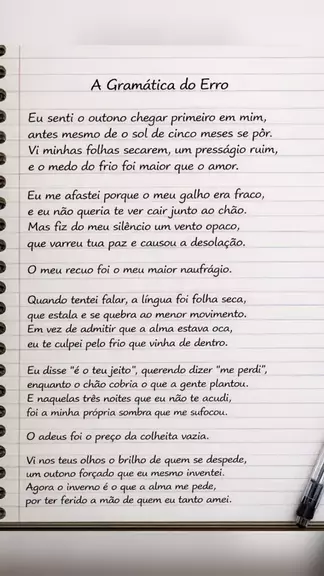 A Gramática do Erro
Eu senti o outono chegar primeiro em mim,
antes mesmo de o sol de cinco meses se pôr.
Vi minhas folhas secarem, um presságio ruim,
e o medo do frio foi maior que o amor.
Eu me afastei porque o meu galho era fraco,
e eu não queria te ver cair junto ao chão.
Mas fiz do meu silêncio um vento opaco,
que varreu tua paz e causou a desolação.
O meu recuo foi o meu maior naufrágio.
Quando tentei falar, a língua foi folha seca,
que estala e se quebra ao menor movimento.
Em vez de admitir que a alma estava oca,
eu te culpei pelo frio que vinha de dentro.
Eu disse "é o teu jeito", querendo dizer "me perdi",
enquanto o chão cobria o que a gente plantou.
E naquelas três noites que eu não te acudi,
foi a minha própria sombra que me sufocou.
O adeus foi o preço da colheita vazia.
Vi nos teus olhos o brilho de quem se despede,
um outono forçado que eu mesmo inventei.
Agora o inverno é o que a alma me pede,
por ter ferido a mão de quem eu tanto amei.